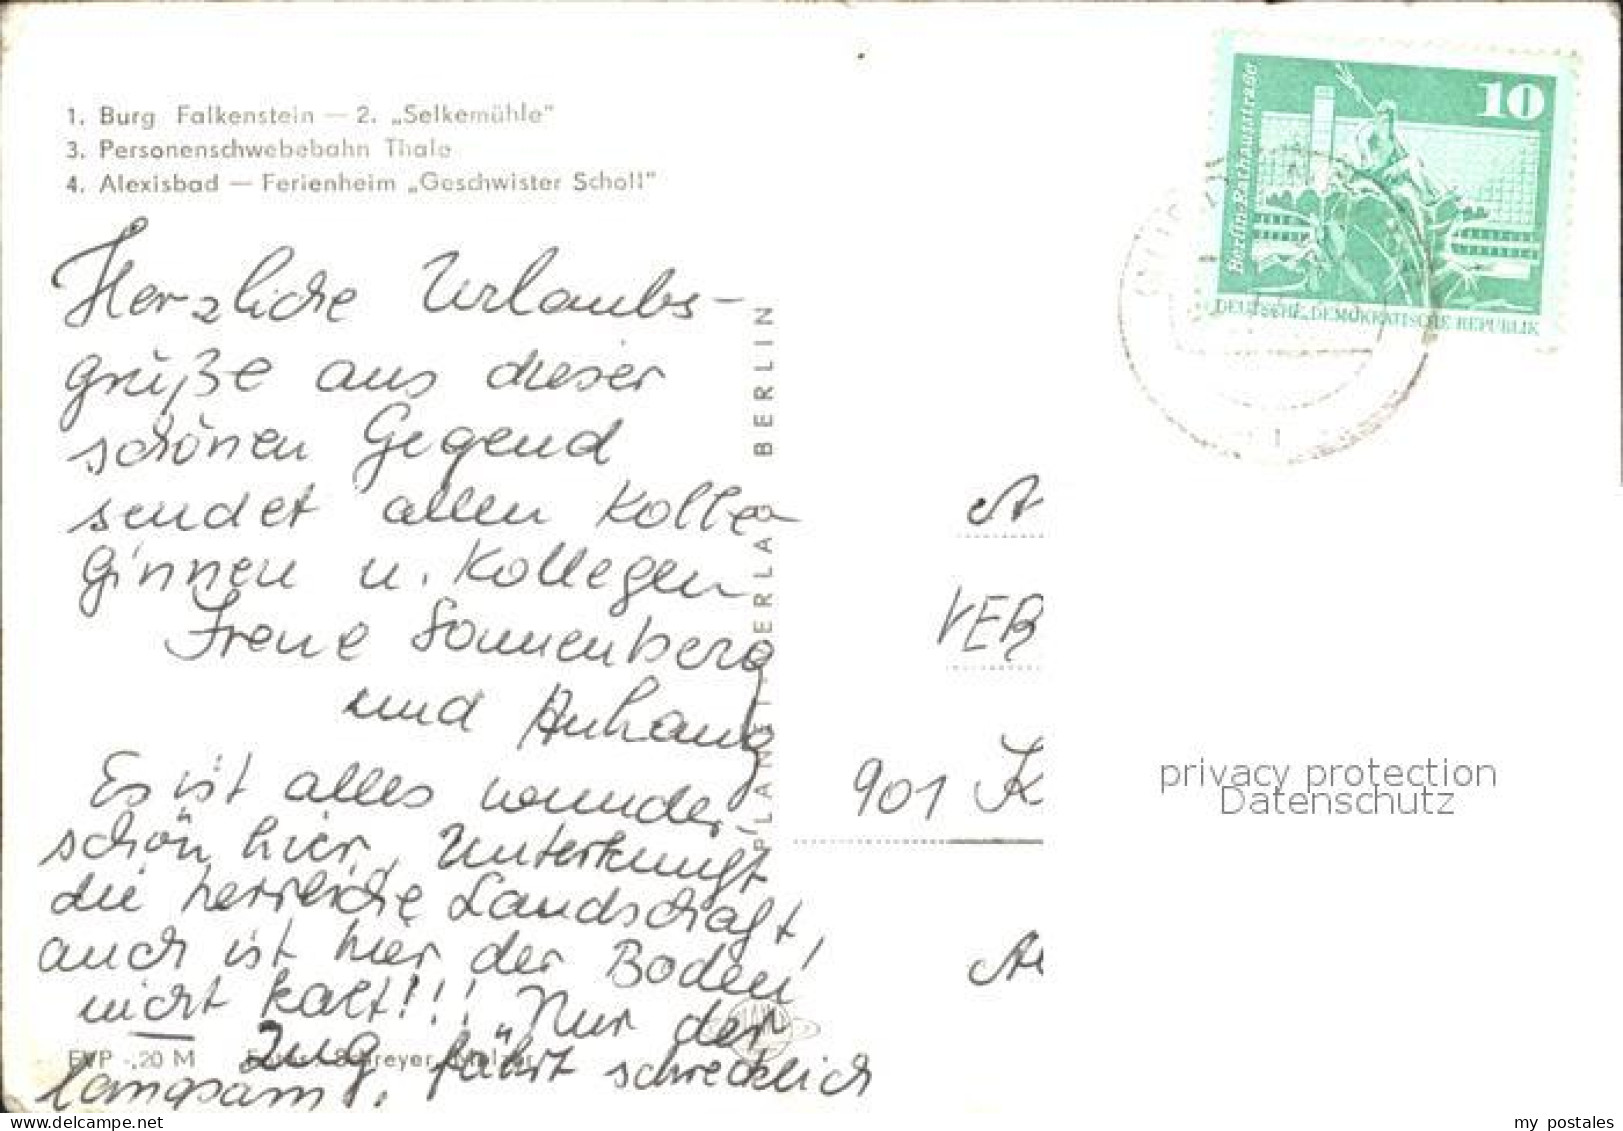 1. Burg Falkenstein — 2. „Selkemühle"
3. Personenschwebebahn Thale
4. Alexisbad — Ferienheim „Geschwister Scholl"
Herzliche Urlaubs-
grüße aus dieser
schönen Gegend
sendet allen Kolle-
ginnen u. Kollegen
Irene Sonnenberg
und Anhang
Es ist alles wunder-
schön hier, Unterkunft
die herrliche Landschaft,
auch ist hier der Boden
nicht kalt!!! Nur der
Zug fährt schrecklich
langsam!.
EVP -,20 M
PLANET-VERLAG BERLIN
10
Berlin-Rathausstraße
DEUTSCHE DEMOKRATISCHE REPUBLIK
VEB
901 K
privacy protection
Datenschutz
www.delcampe.net
my_postales